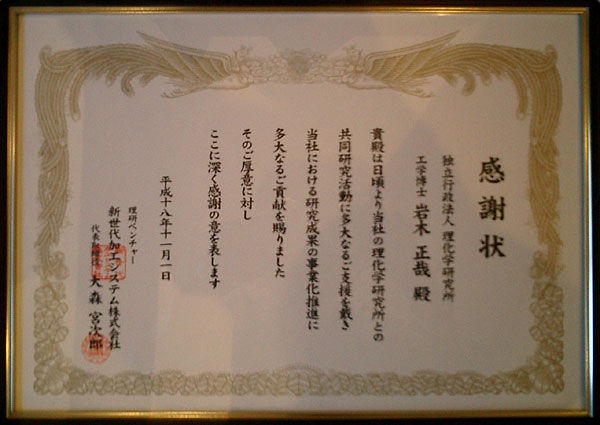 感謝状
独立行政法人 理化学研究所
工学博士 岩木 正哉 殿
貴殿は日頃より当社の理化学研究所との
共同研究活動に多大なるご支援を戴き
当社における研究成果の事業化推進に
多大なるご貢献を賜りました
そのご厚意に対し
ここに深く感謝の意を表します
平成十八年十一月一日
理研ベンチャー
新世代加工システム株式会社
代表取締役 大森 宮次郎